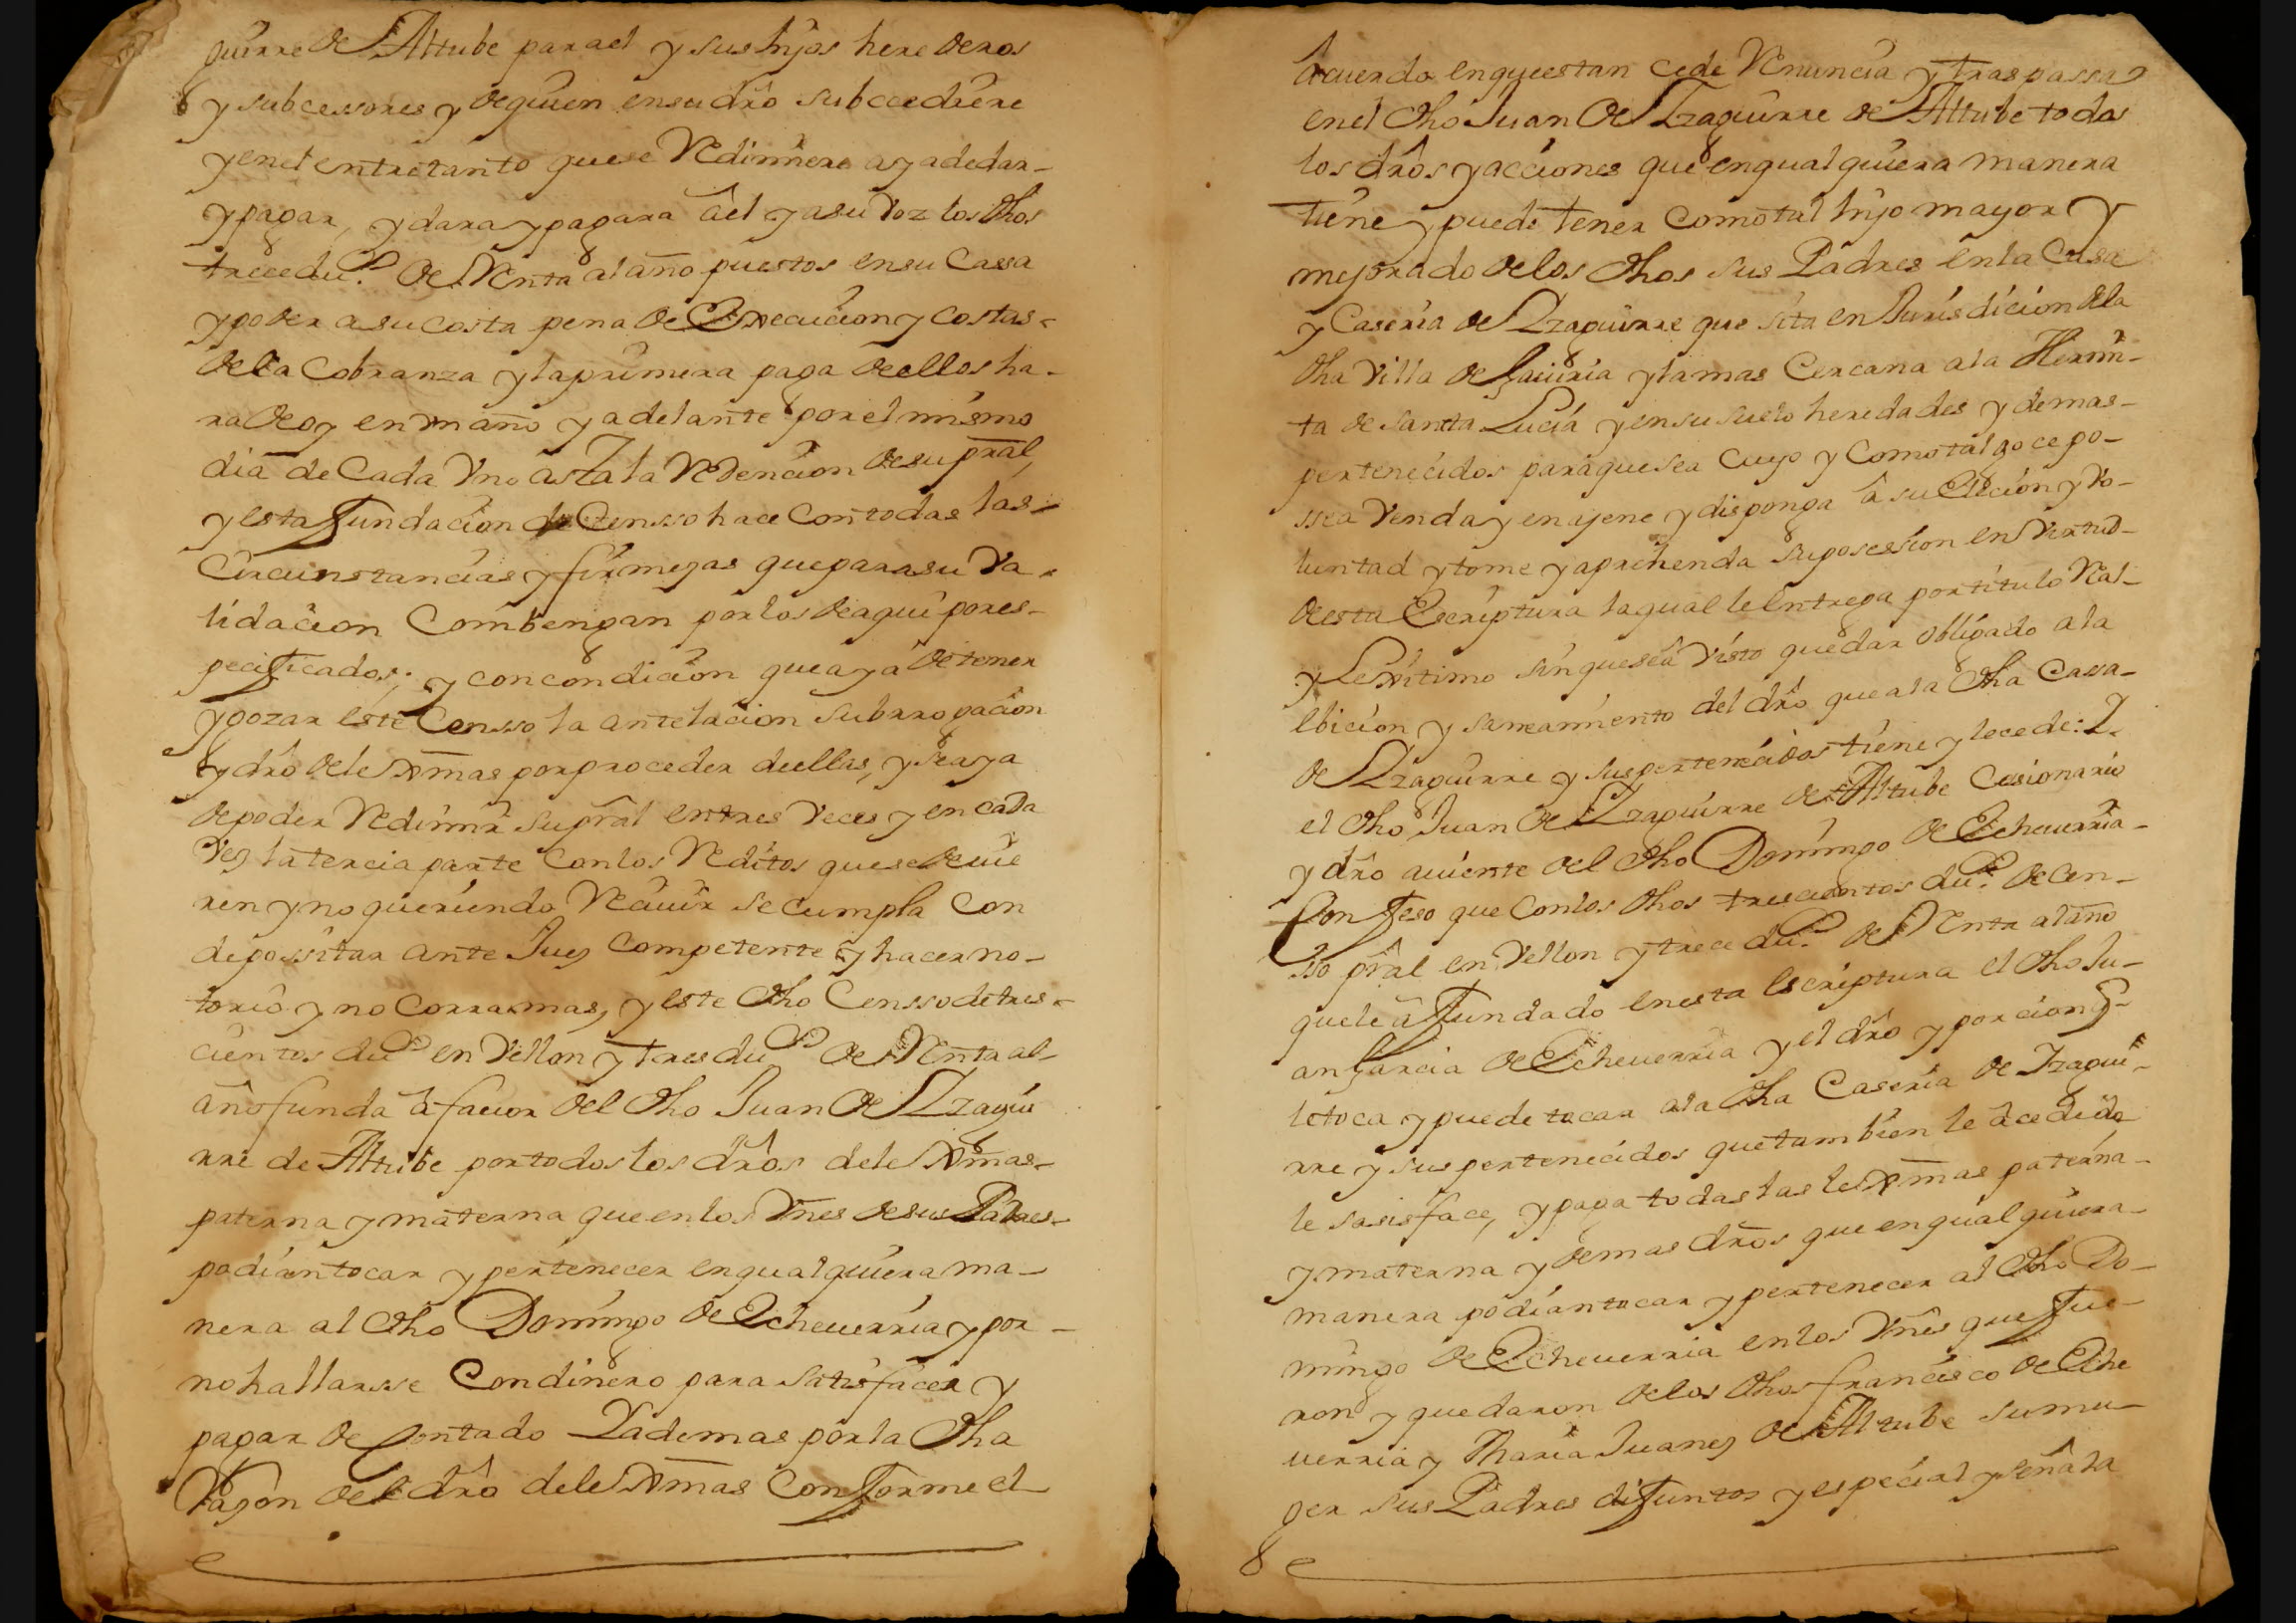 guirre de Altube para el y sus hijos herederos
y subcessores y de quien en su dro subcediere
y en el entretanto que se Redimiere aya de dar
y pagar, y dara y pagara â el y a su Voz los dhos
trece du.s de Renta al año puestos en su Cassa
y poder a su costa pena de Execucion y costas
de la Cobranza y la primera paga de ellos ha-
ra de oy en vn año y adelante por el mismo
dia de Cada Vno asta la Redencion de su pral,
y esta fundacion de Censso hace con todas las
Circunstancias y firmezas que para su Va-
lidacion Combengan por los de aqui por es-
pecificados; y con condicion que aya de tener
y gozar este Censso la antelacion subrrogacion
y dro de lexmas por proceder de ellas, y se aya
de poder Redimir su pral en tres Veces y en cada
Vez la tercia parte con los Reditos que se deuie
ren y no queriendo Reciuir se cumpla Con
depossitar ante Juez Competente y hacer no-
torio y no Corra mas, y este dho Censso de tres-
cientos du.s en Vellon y tres du.s de Renta al
año funda â fauor del dho Juan de Yzagui
rre de Altube por todos los dros de lexmas
paterna y materna que en los Vnes de sus Padres
podian tocar y pertenecer en qualquiera ma-
nera al dho Domingo de Echeuerria y por
no hallarsse Con dinero para satisfacer y
pagar de Contado Y ademas por la dha
Razon del dro de lexmas Conforme el
Acuerdo en que estan cede Renuncia y traspassa
en el dho Juan de Yzaguirre de Altube todos
los dros y acciones que en qualquiera manera
tiene y puede tener Como tal hijo mayor y
mejorado de los dhos sus Padres en la Casa
y Caseria de Yzaguirre que sita en Jurisdicion de la
dha Villa de Gauiria y la mas Cercana a la Hermi-
ta de Santa Lucia y en su suelo heredades y demas
pertenecidos para que sea Cuyo y Como tal goce po-
ssea Venda y enajene y disponga â su Elecion y Vo-
luntad y tome y aprehenda su posession en Virtud
de esta Escriptura la qual le entrega por titulo Real
y Lexitimo sin que sea Visto quedar obligado a la
Ebicion y saneamiento del dro que a la dha Cassa
de Yzaguirre y sus pertenecidos tiene y le cede: Y
el dho Juan de Yzaguirre de Altube Cesionario
y dro auiente del dho Domingo de Echeuerria
Confeso que Con los dhos trescientos du.s de Cen-
sso pral en Vellon y trece du.s de Renta al año
que le â fundado en esta escriptura el dho Ju-
an Garcia de Echeuerria y el dro y porcion q
le toca y puede tocar a la dha Caseria de Yzagui-
rre y sus pertenecidos que tambien le â cedido
le satisface, y paga todas las lexmas paterna
y materna y demas dros que en qualquiera
manera podian tocar y pertenecer al dho Do-
mingo de Echeuerria en los Vnes que fue-
ron y quedaron de los dhos francisco de Eche
uerria y Maria Juanez de Altube su mu-
ger sus Padres difuntos y especial y señala